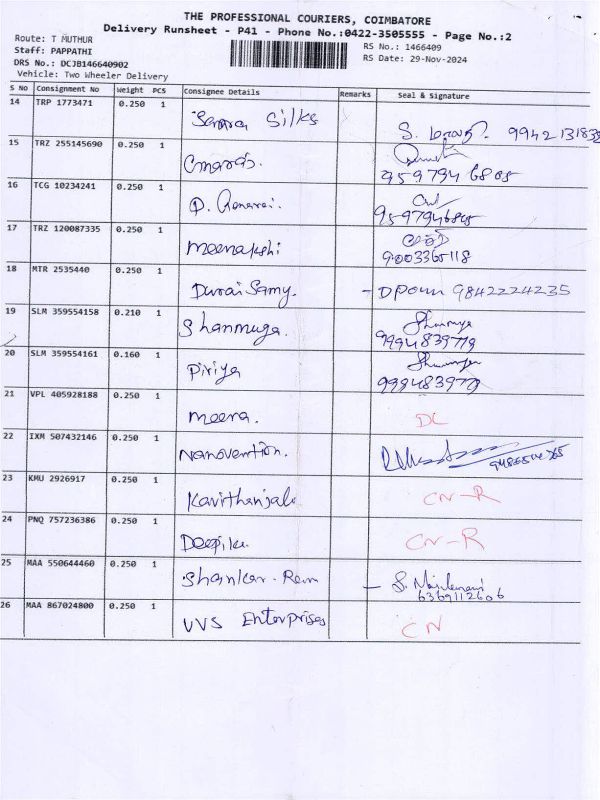 THE PROFESSIONAL COURIERS, COIMBATORE
Delivery Runsheet - P41 - Phone No.:0422-3505555 - Page No.:2
Route: T MUTHUR
Staff: PAPPATHI
DRS No.: DCJB146640902
Vehicle: Two Wheeler Delivery
RS No.: 1466409
RS Date: 29-Nov-2024
S No Consignment No Weight PCS Consignee Details Remarks Seal & Signature
14 TRP 1773471 0.250 1 Silks
15 TRZ 255145690 0.250 1
9597946805
16 TCG 10234241 0.250 1 D.
17 TRZ 120087335 0.250 1 Meenakshi
9003365118
18 MTR 2535440 0.250 1 Durai Samy. 9842224235
19 SLM 359554158 0.210 1 Shanmuga.
20 SLM 359554161 0.160 1 Piriya
21 VPL 405928188 0.250 1 Meera. DL
22 IXM 507432146 0.250 1 Nanovention.
23 KMU 2926917 0.250 1 Kavithanjali CN-R
24 PNQ 757236386 0.250 1 Deepika CN-R
25 MAA 550644460 0.250 1 Shankar Ram
6369112606
26 MAA 867024800 0.250 1 VVS Enterprises CN